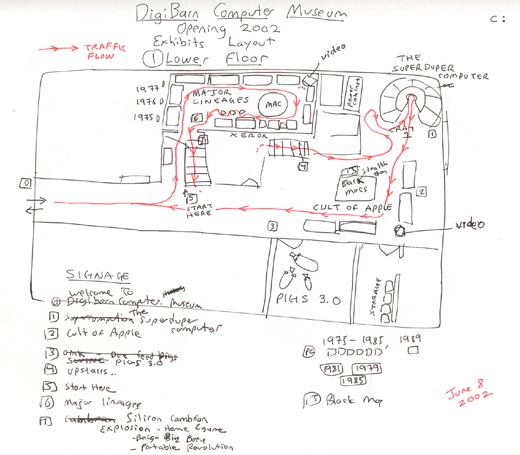 DigiBarn Computer Museum
Opening 2002
Exhibits Layout
1 Lower Floor
C:
TRAFFIC
FLOW
video
THE
SUPERDUPER
COMPUTER
1977
1976
1975
MAJOR
LINEAGES
MAC
XEROX
power cabinet
CRAY
1
1
0
6
4
5
START
HERE
13 stealth
Black
macs
CULT OF APPLE
2
3
video
PIGS 3.0
STORAGE
SIGNAGE
welcome to
0 Digibarn Computer Museum
1 The Superduper
computer
2 Cult of Apple
3 PIGS 3.0
4 upstairs..
5 Start Here
6 Major lineages
7 Silicon Cambrian
Explosion - Home Game
- Big Bang
- Portable Revolution
1975- 1985, 1989
PC
1981 1979
1985
13 Black Mac
June 8
2002